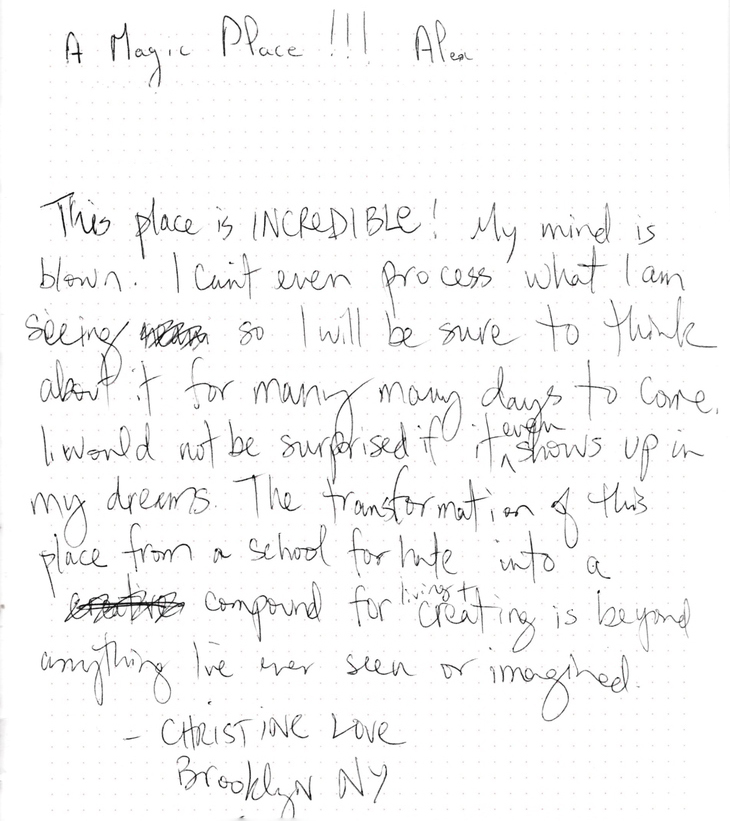 A Magic Place !!! Alex
This place is INCREDIBLE! My mind is
blown. I can't even process what I am
seeing so I will be sure to think
about it for many many days to come.
I would not be surprised if it even shows up in
my dreams. The transformation of this
place from a school for hate into a
compound for living + creating is beyond
anything I've ever seen or imagined.
- CHRISTINE LOVE
Brooklyn NY